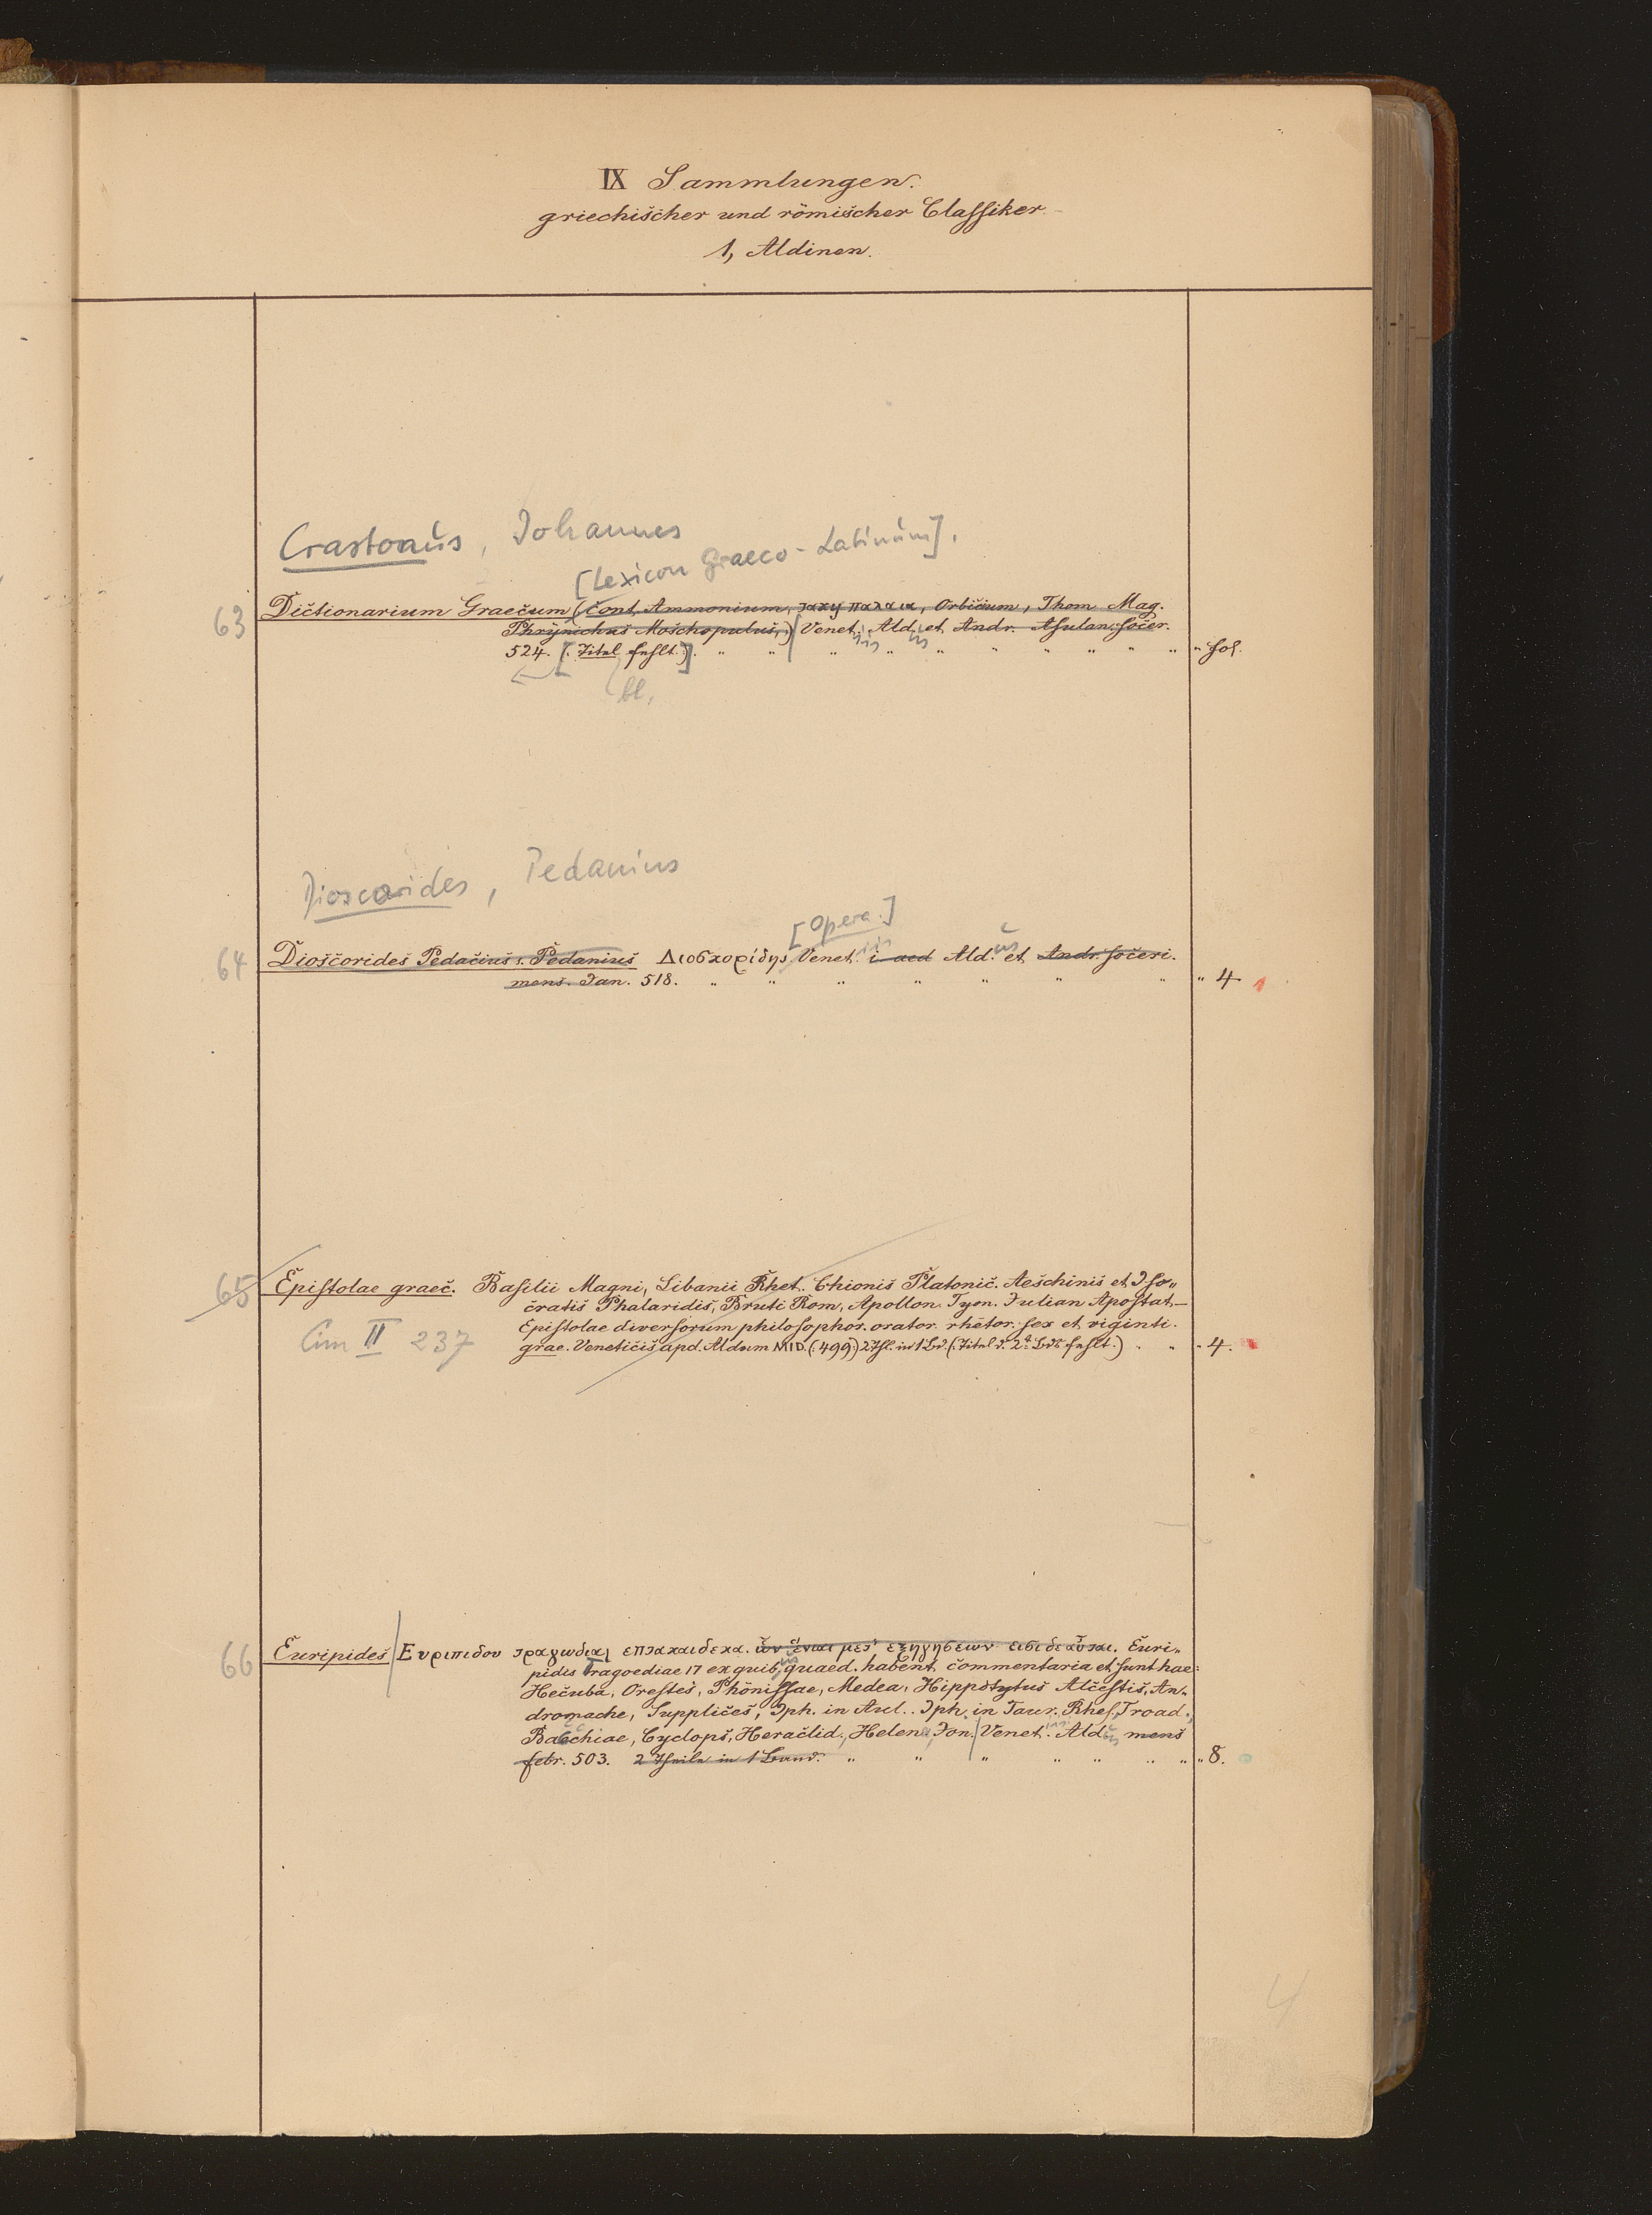 IX Sammlungen.
griechischer und römischer Classiker
1, Aldinen.
Crastonus, Johannes
[Lexicon Graeco-Latinum].
63 Dictionarium Graecum (Cont. Ammonium, παλαια, Orbicium, Thom. Mag.
Phrynichus Moschopulus,) Venet. Ald. et Andr. Asulan. Socer.
524. [(. Titel fehlt.)] " " " " " " " " " " " fol.
bl.
Dioscorides, Pedanius
[Opera.]
64 Dioscorides Pedacius s. Pedanius Διοσκορίδης Venet. i aed Ald. us et Andr. Soceri.
mens. Jan. 518. " " " " " " " " 4 1
65 Epistolae graec. Basilii Magni, Libanii Rhet. Chionis Platonic. Aeschinis et Iso„
cratis Phalaridis, Bruti Rom, Apollon. Tyan. Julian Apostat.—
Epistolae diversorum philosophor. orator. rhetor. sex et viginti.
Cim II 237 grae. Veneticis apd. Aldum MID. (:499:) 2 Thl. in 1 Bd. (. Titel d. 2t. Bds fehlt.) " " " 4.
66 Euripides Ευριπιδου τραγωδιαι επτακαιδεκα. ὧν ἔνιαι μετ' εξηγησεων εισιδε αὗται. Euri„
pidis Tragoediae 17 ex quib. quaed. habent commentaria et sunt hae:
Hecuba, Orestes, Phönissae, Medea, Hippolytus Alcestis, An„
dromache, Supplices, Iph. in Aul.. Iph. in Taur. Rhes, Troad.,
Bacchiae, Cyclops, Heraclid., Helena, Ion. Venet. Ald. us mens
febr. 503. 2 Theile in 1 Band. " " " " " " " " 8.
4